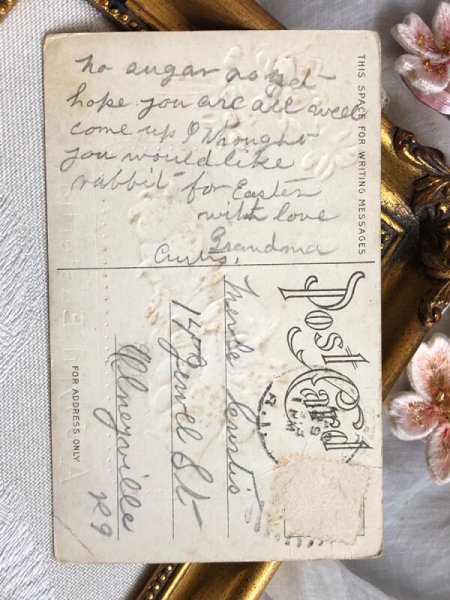 THIS SPACE FOR WRITING MESSAGES
no sugar as yet
hope you are all well
come up I thought
you would like
rabbit for Easter
with love
Grandma
Curtis.
Post Card
Merle Curtis
14 Jewel St
Olneyville
RI
FOR ADDRESS ONLY